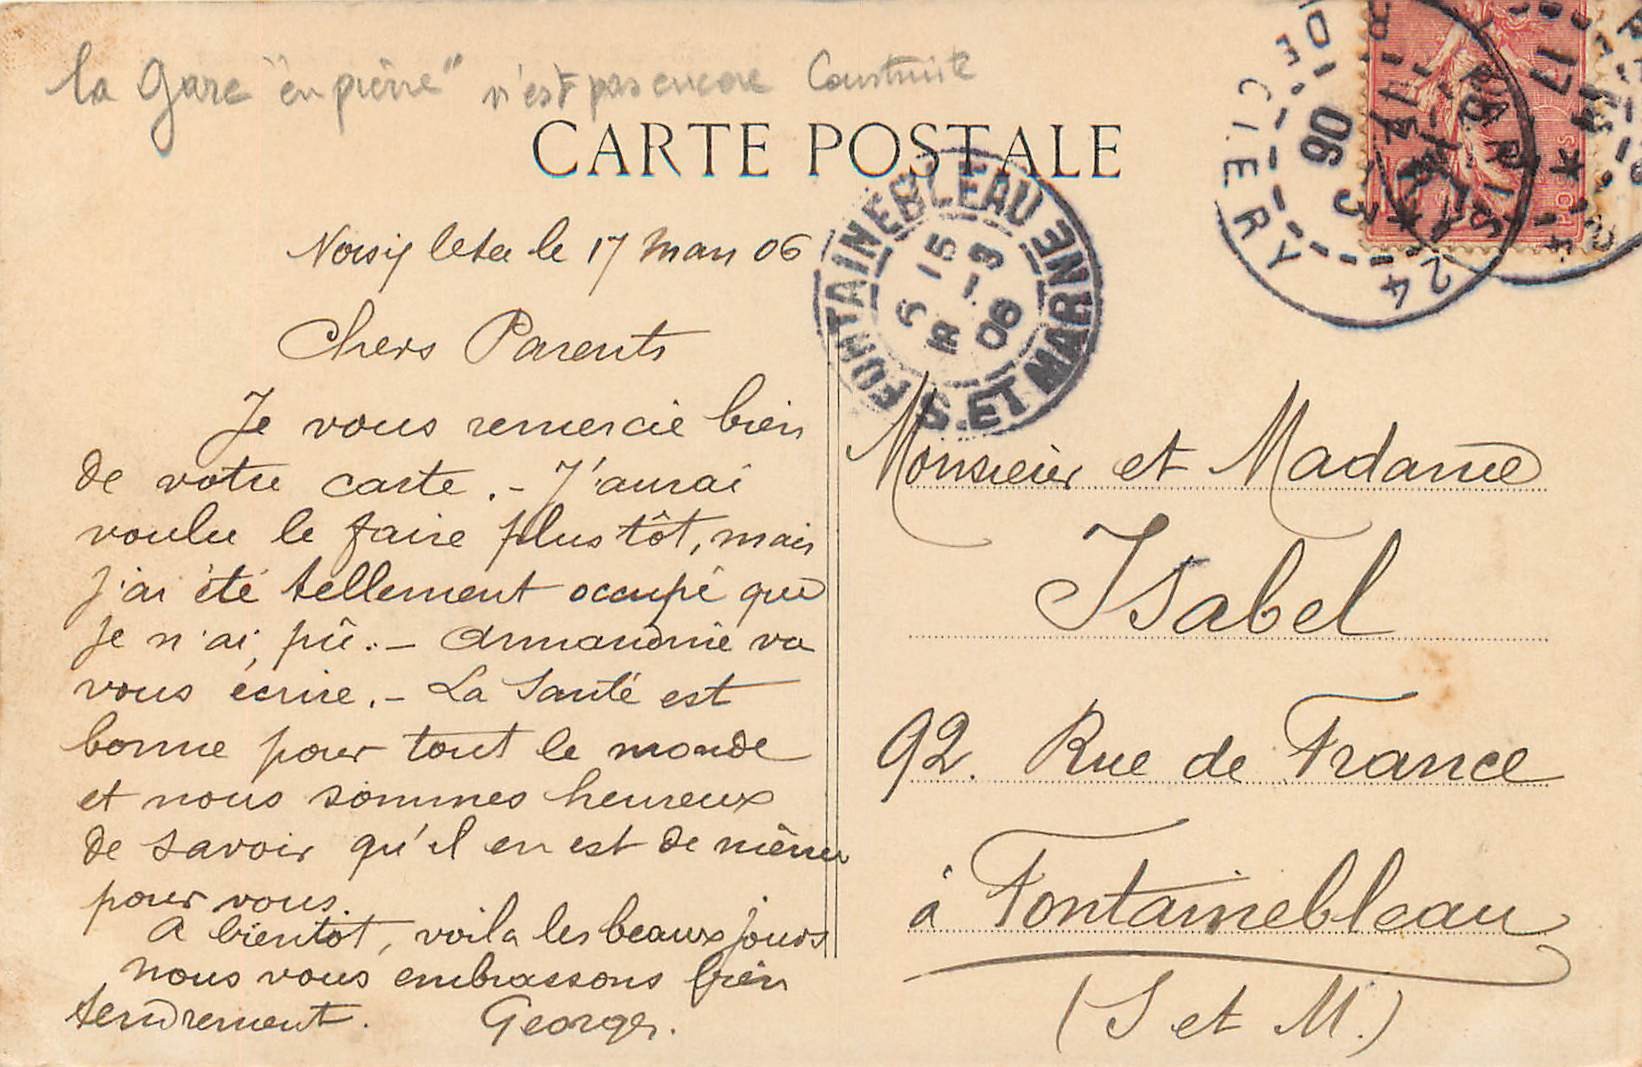 la Gare "en pierre" n'est pas encore Construite
CARTE POSTALE
FONTAINEBLEAU
S. ET MARNE
6 15
18 -3
06
PARIS
CIERY
24
3
06
17
POSTES
Noisy le 17 Mars 06
Chers Parents
Je vous remercie bien
de votre carte. - J'aurai
voulu le faire plus tôt, mais
j'ai été tellement occupé que
je n'ai pû. - Armandine va
vous écrire. - La Santé est
bonne pour tout le monde
et nous sommes heureux
de savoir qu'il en est de même
pour vous.
A bientôt, voila les beaux jours
nous vous embrassons bien
tendrement. Georges.
Monsieur et Madame
Isabel
92. Rue de France
à Fontainebleau
(S et M.)